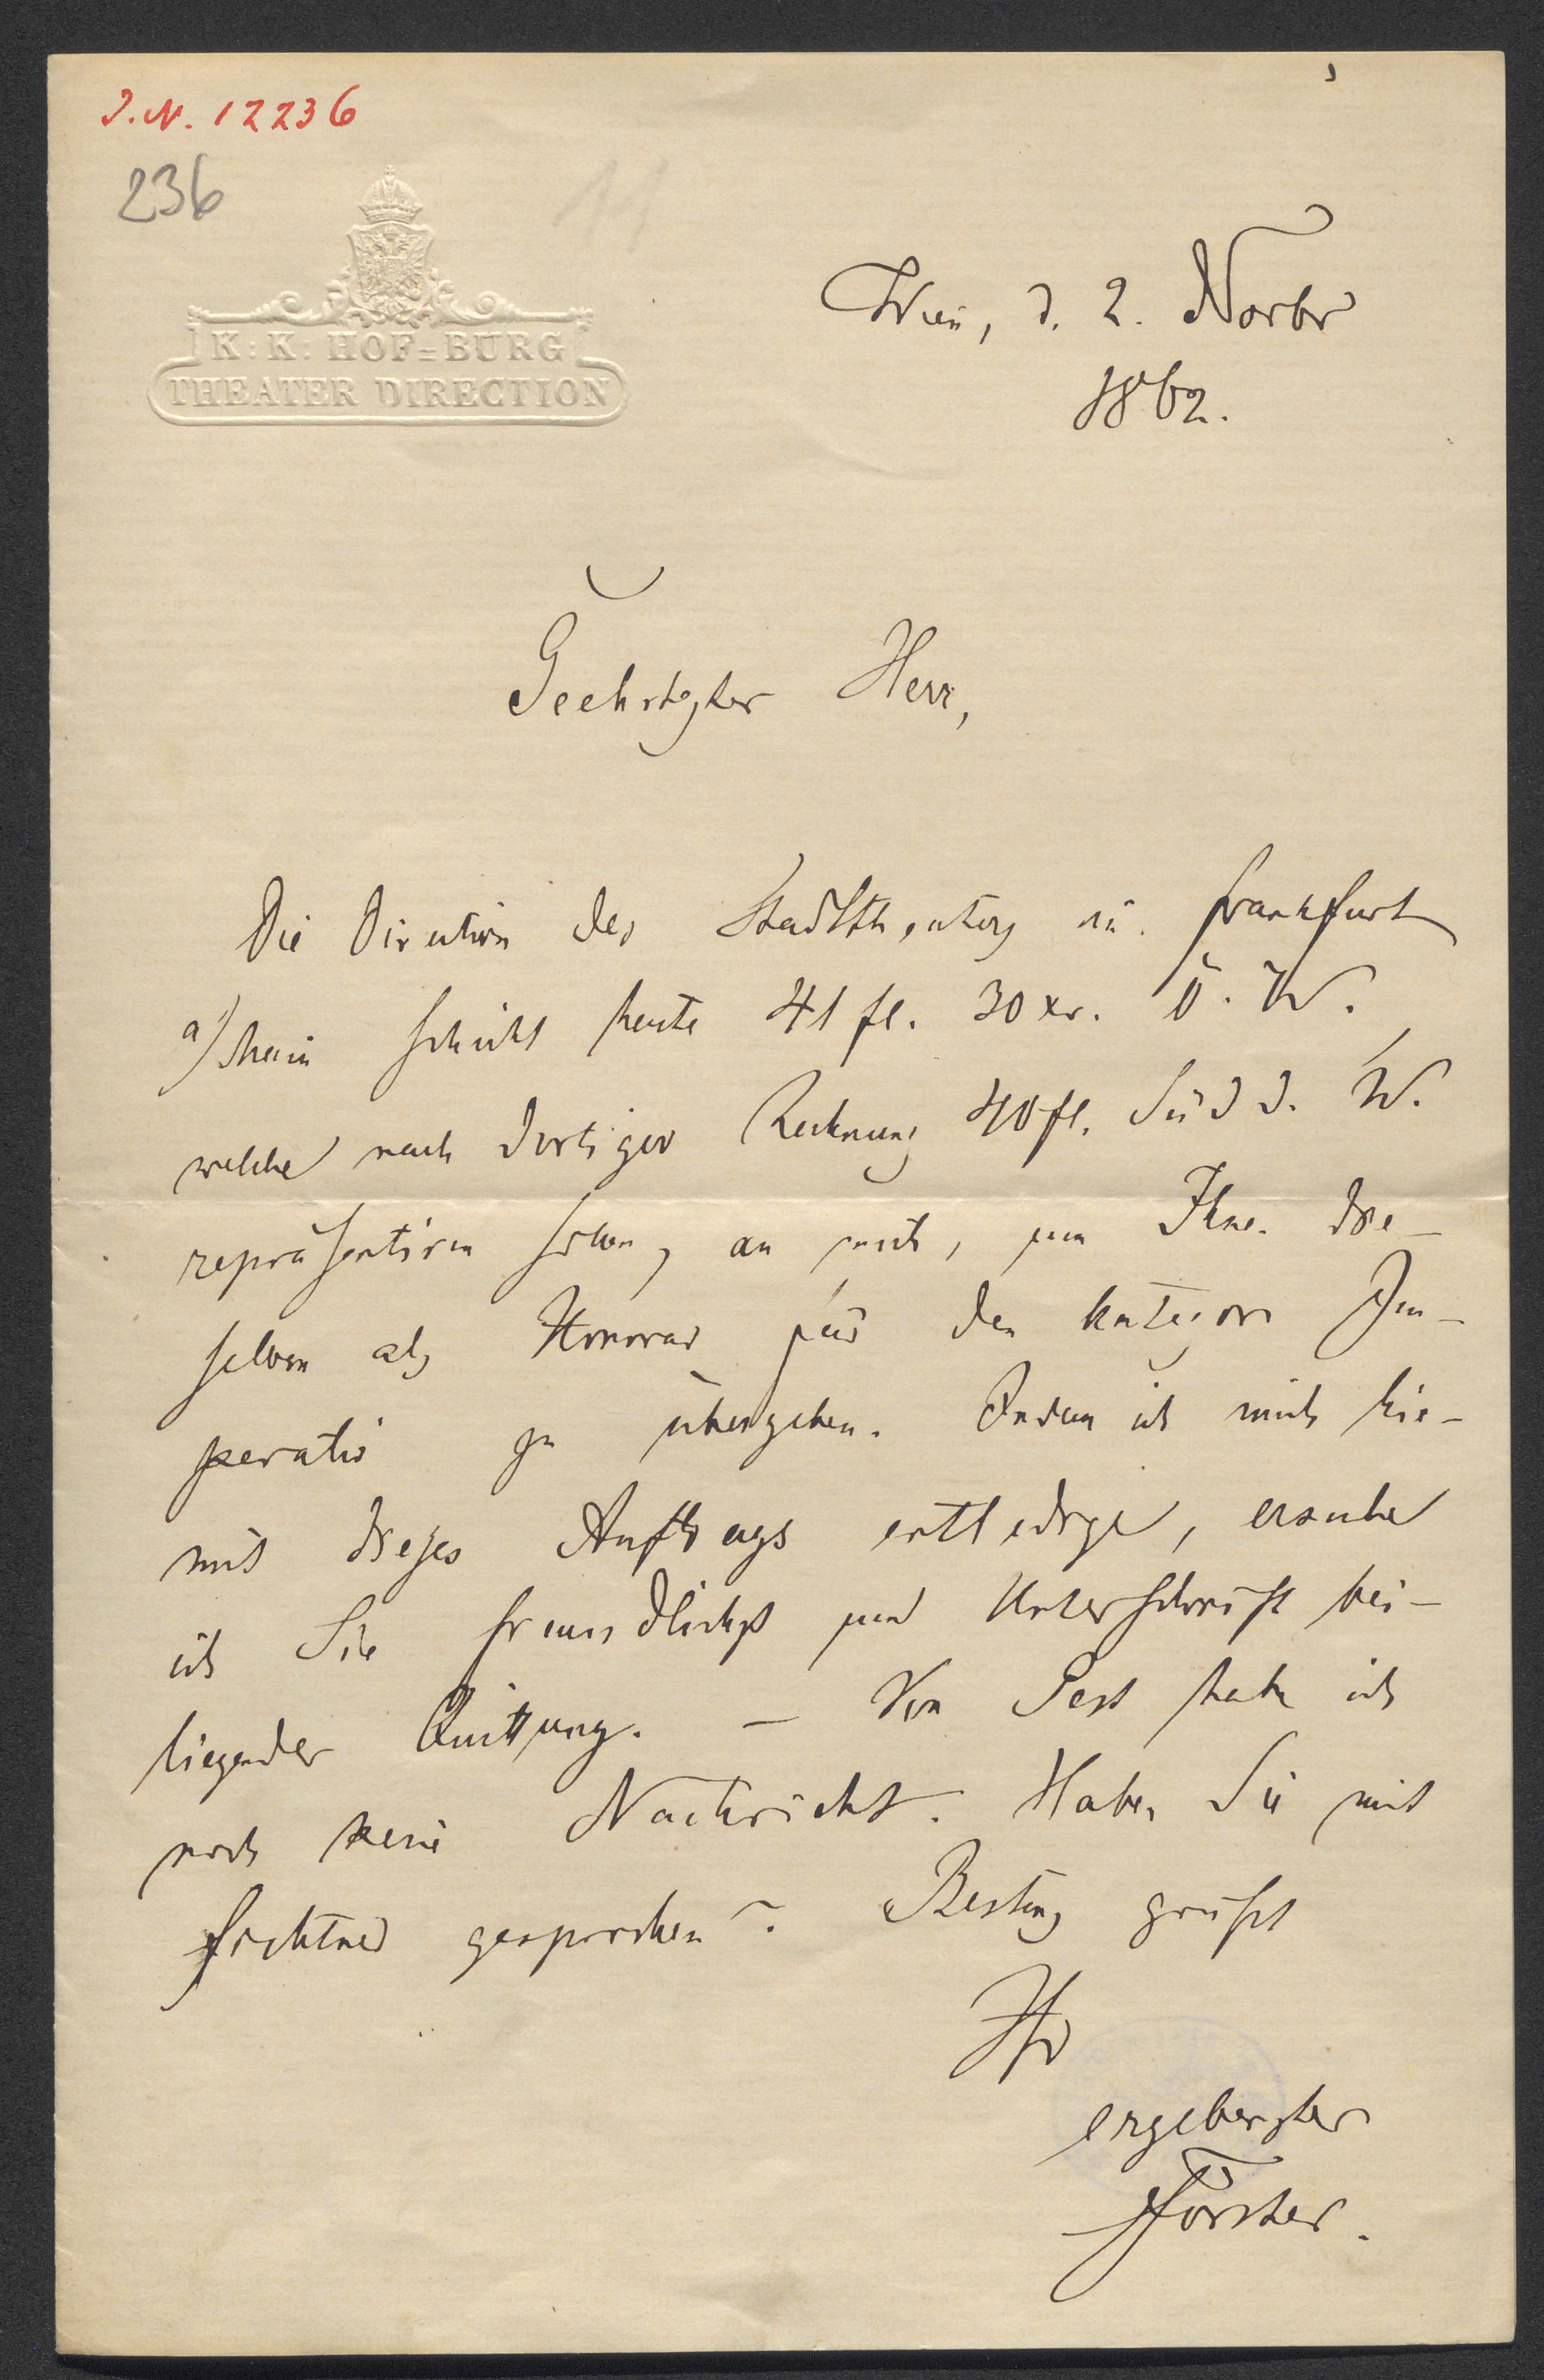 J.N. 12236
236
11
K: K: HOF=BURG
THEATER DIRECTION
Wien, d. 2. Novbr
1862.
Geehrtester Herr,
Die Direction des Stadttheaters in Frankfurt
a/Main schickt heute 41 fl. 30 xr. Ö. W.
welche nach dortiger Rechnung 40 fl. Südd. W.
repräsentiren sollen, an mich, um Ihnen die-
selben als Honorar für den kategor. Im-
perativ zu übergeben. Indem ich mich hie-
mit dieses Auftrags entledige, ersuche
ich Sie freundlichst um Unterschrift bei-
liegender Quittung. — Von Pest habe ich
noch keine Nachricht. Haben Sie mit
Fichtner gesprochen? Bestens grüßt
Ihr
ergebenster
Förster.